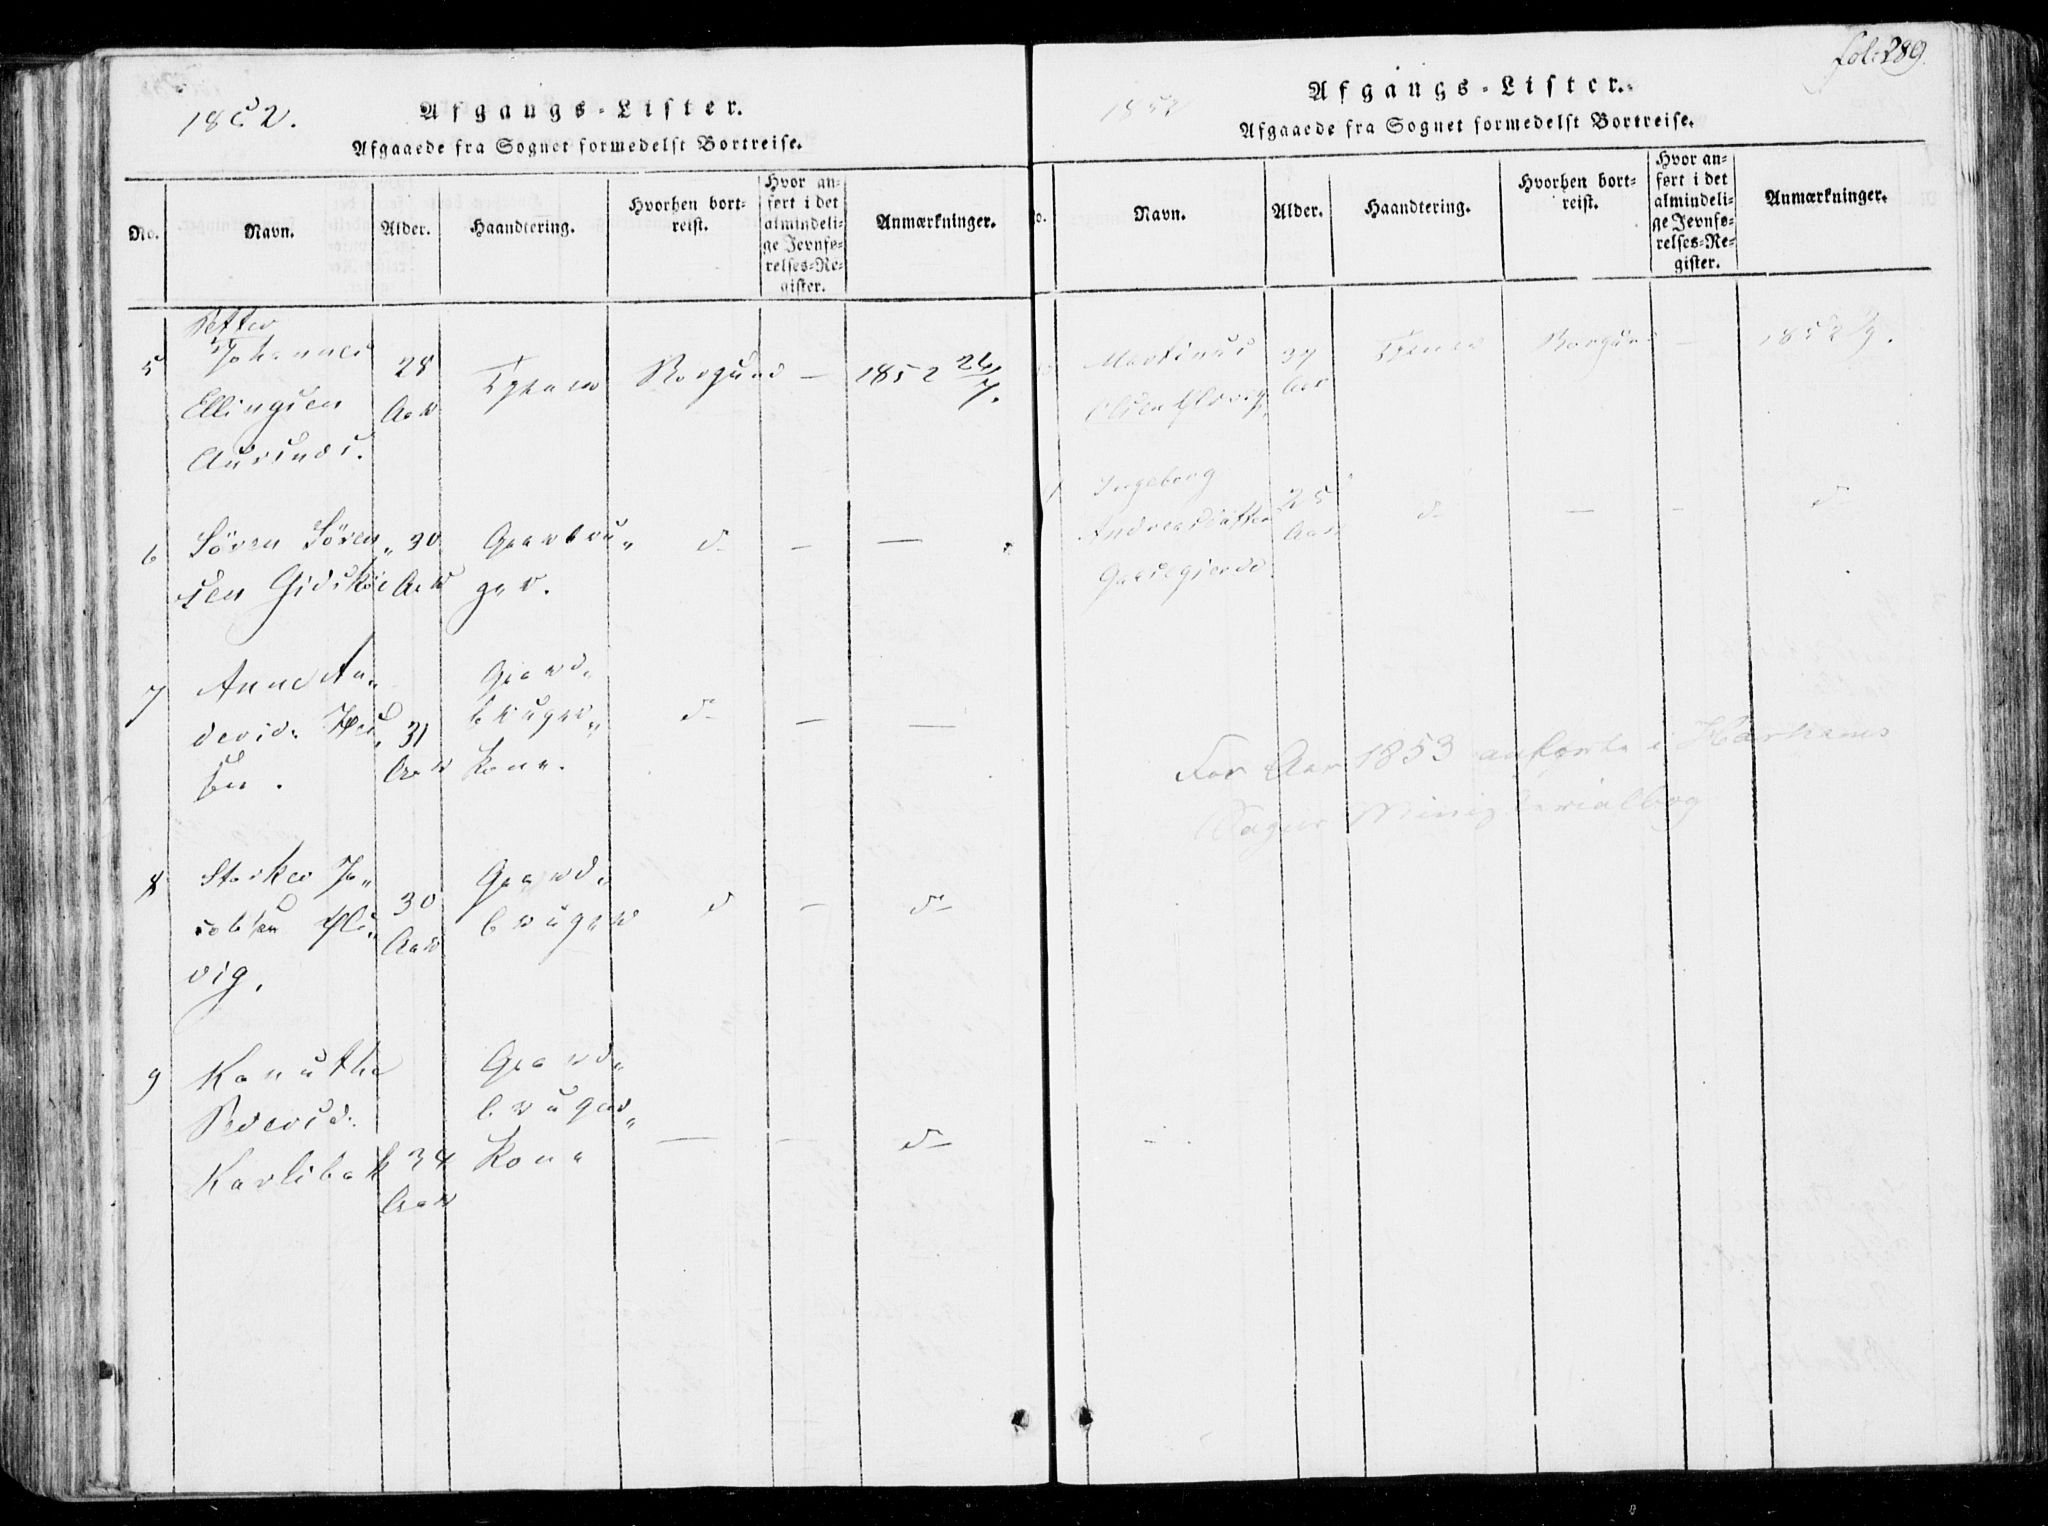 1852.
Afgangs-Lister.
Afgaaede fra Sognet formedelst Bortreise.
No.
Navn.
Alder.
Haandtering.
Hvorhen bort-
reist.
Hvor an-
ført i det
almindeli-
ge Jevnfø-
relses-Re-
gister.
Anmærkninger.
5
Petter
Johannes
Ellingsen
28
Aar
Tjener
Borgund
—
1852 26/7.
6
Søren Søren„
sen Gidskøe
30
Aar
Gaardbru„
ger.
d
—
—
7
Anne An„
dersd.
31
Aar
Gaard„
bruger„
Kone.
d
—
—
8
Jo„
vig.
30
Aar
Gaard„
bruger
d
—
d
9
Kanutha
Pedersd.
Karlsbak
34
Aar
Gaard„
bruger„
Kone
—
—
d
fol: 289.
1852
Afgangs-Lister.
Afgaaede fra Sognet formedelst Bortreise.
Navn.
Alder.
Haandtering.
Hvorhen bort-
reist.
Hvor an-
ført i det
almindeli-
ge Jevnfø-
relses-Re-
gister.
Anmærkninger.
Martinus
Olsen
Aar
Tjener
Borgund
—
1852
Ingeborg
Andreasdatter
25
Aar
d
—
—
d
For Aar 1853 anførte i Harhams
Sogns Ministerialbog